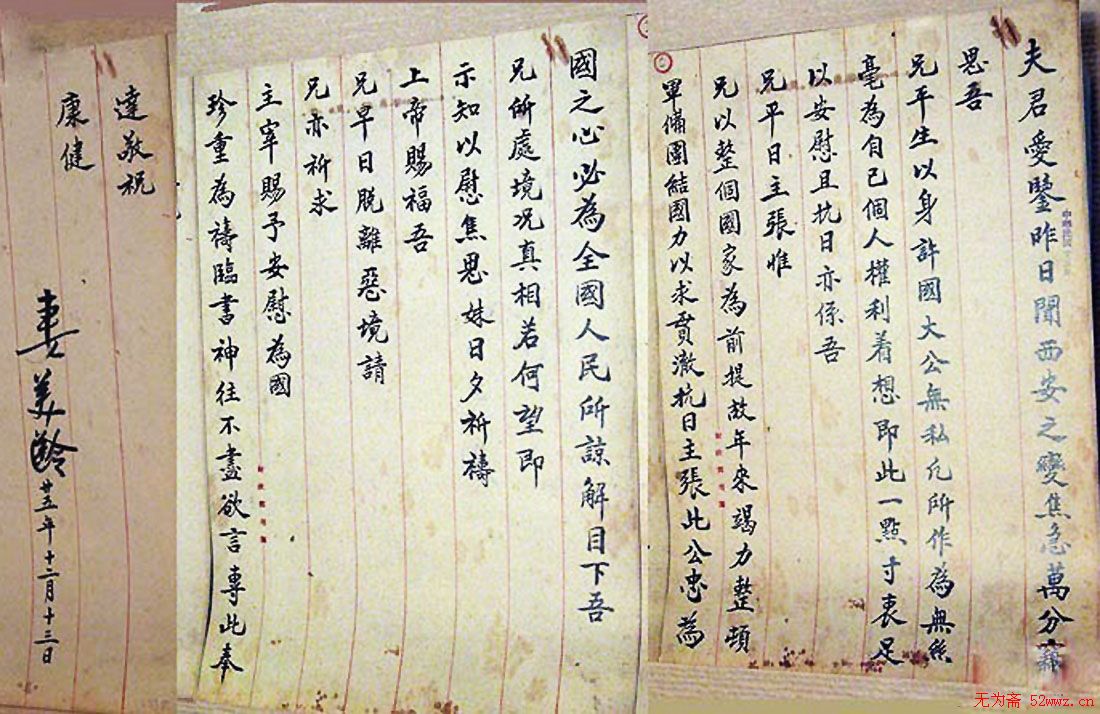 夫君愛鑒昨日聞西安之變焦急萬分竊
思吾
兄平生以身許國大公無私凡所作為無絲
毫為自己個人權利着想即此一點寸衷足
以安慰且抗日亦係吾
兄平日主張惟
兄以整個國家為前提故年來竭力整頓
軍備團結國力以求貫澈抗日主張此公忠為
國之心必為全國人民所諒解目下吾
兄所處境况真相若何望即
示知以慰焦思妹日夕祈禱
上帝賜福吾
兄早日脱離惡境請
兄亦祈求
主宰賜予安慰為國
珍重為禱臨書神往不盡欲言專此奉
達敬祝
康健
妻美齡 廿五年十二月十三日
无为斋 52wwz.cn